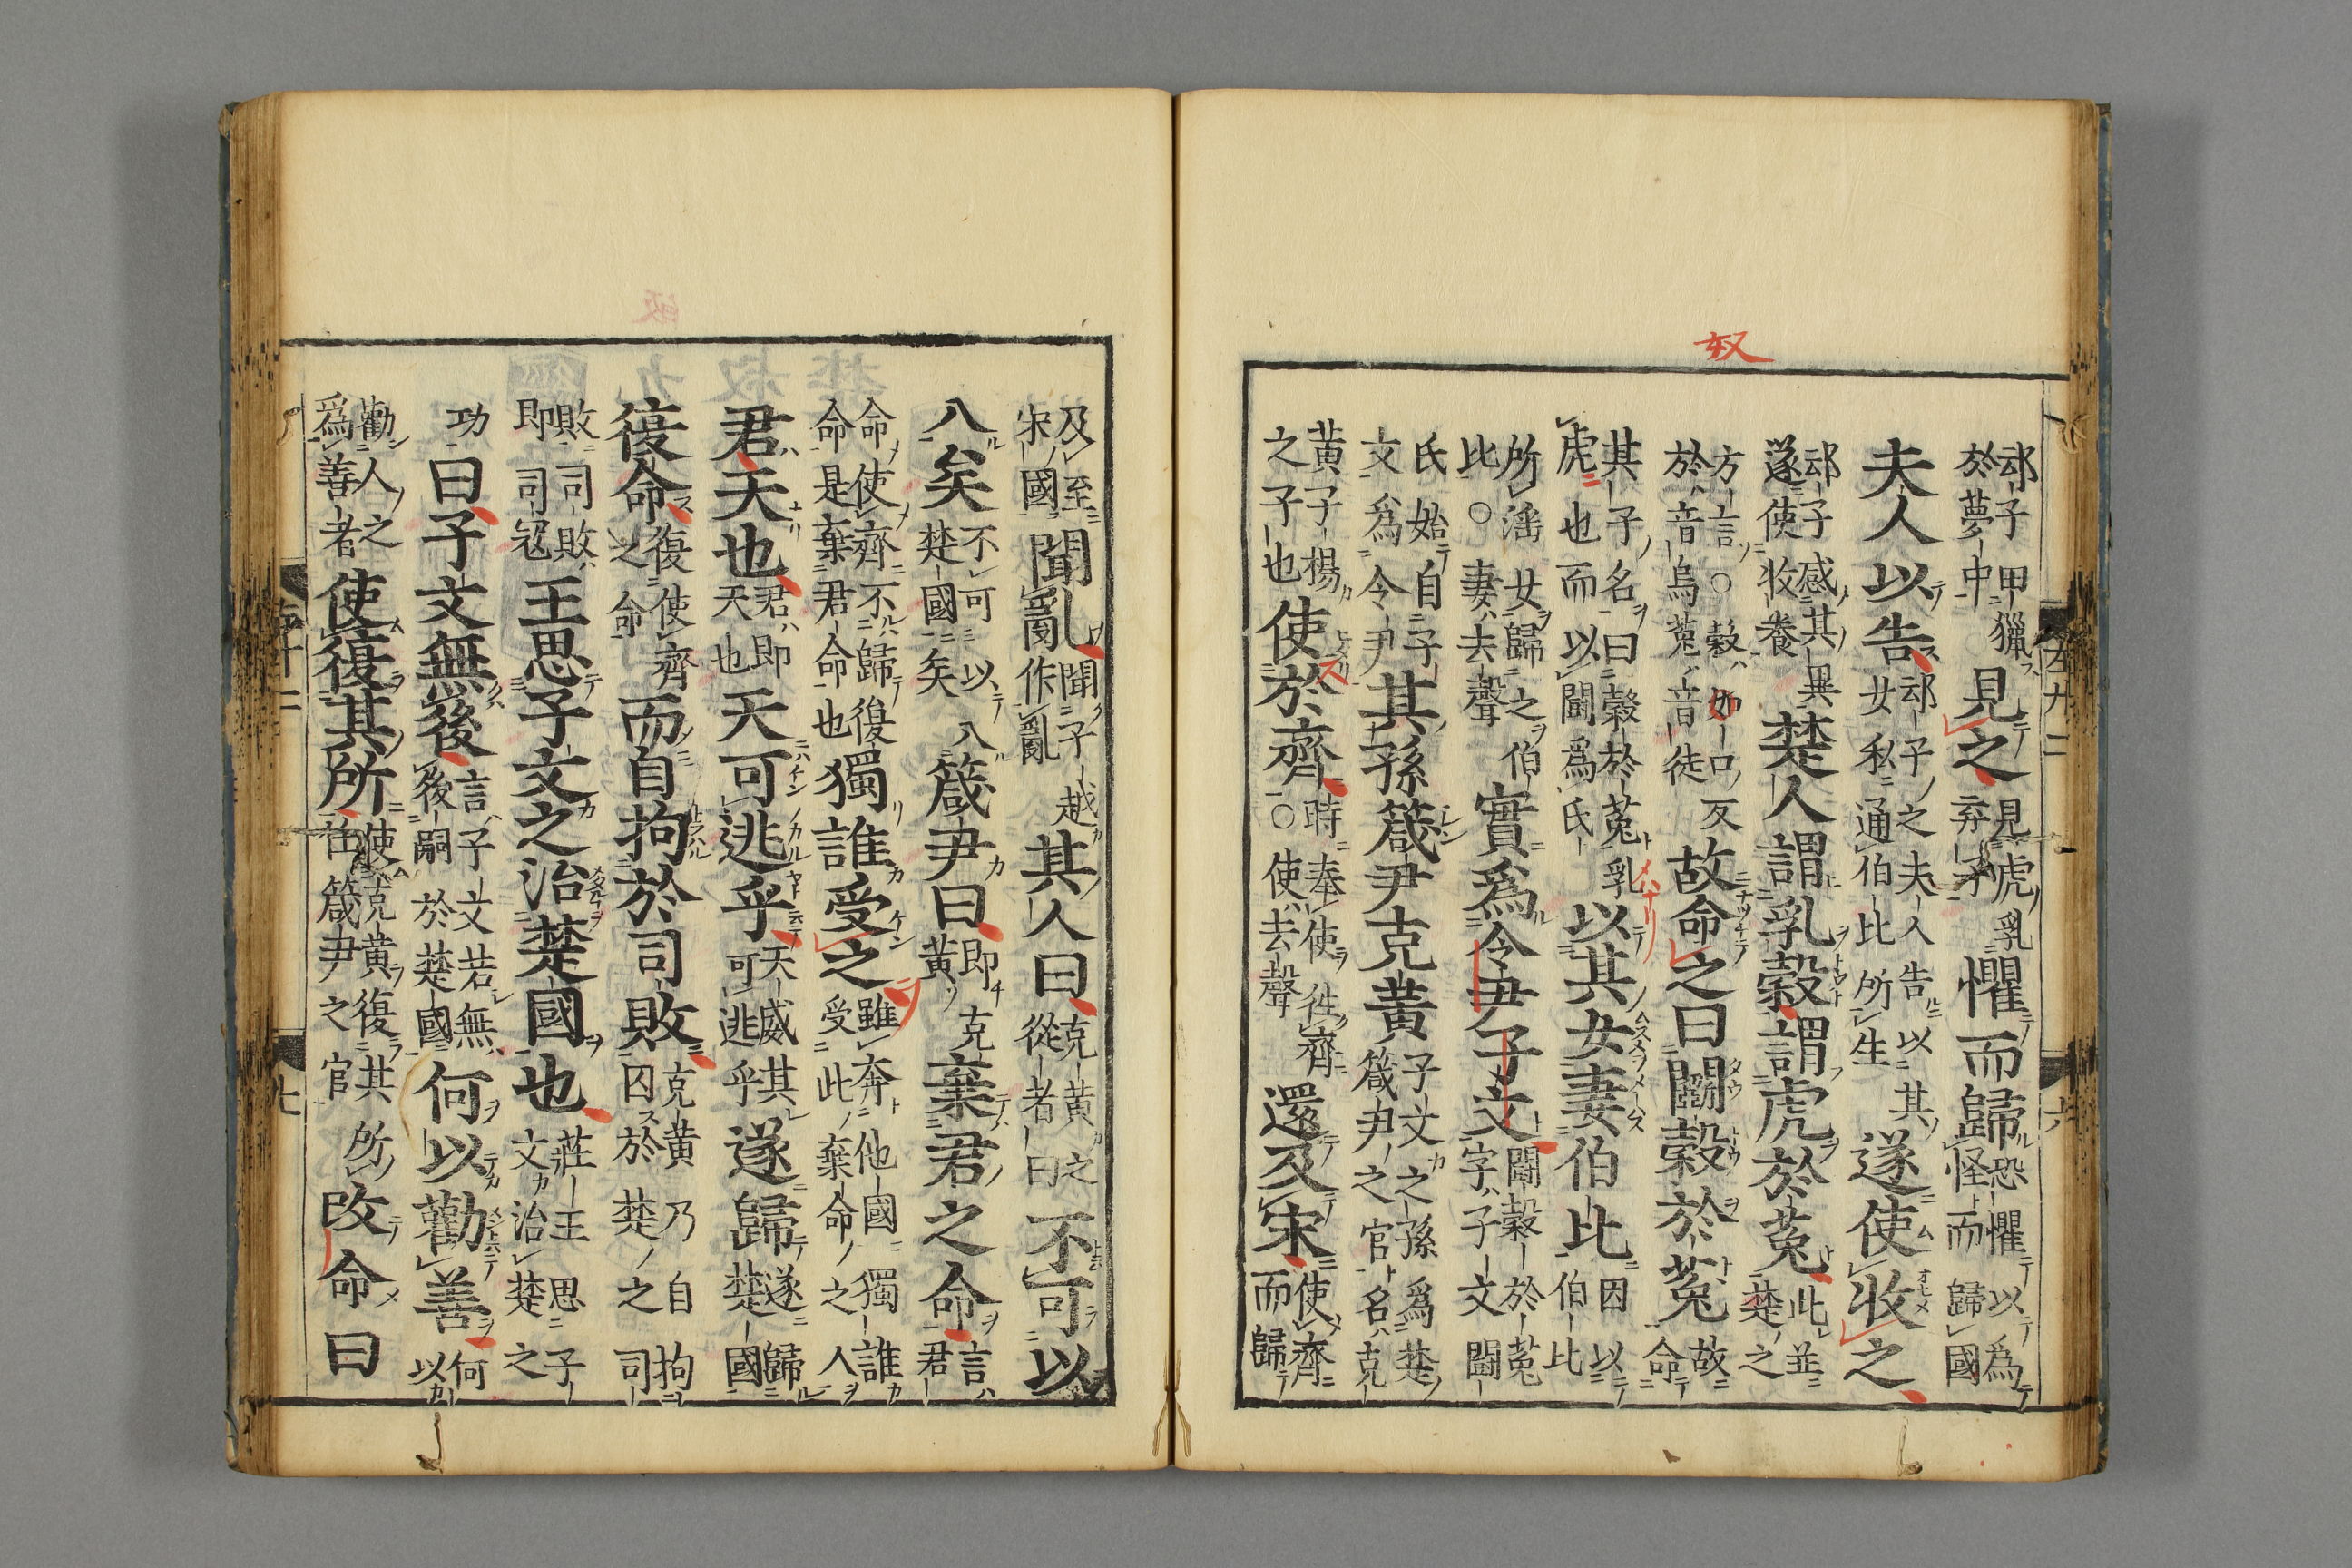 奴
䢵子甲獵於夢中見之見虎乳弃子懼而歸恐懼以爲怪而歸國
夫人以告䢵子之夫人告以其女私通伯比所生遂使收之
䢵子感其異遂使收養楚人謂乳穀謂虎於菟此並楚之
方言○穀如口反於音烏菟音徒故命之曰鬭穀於菟故命
其子名曰穀於菟乳虎也而以鬭爲氏以其女妻伯比因以伯比
所滛女歸之伯比○妻去聲實爲令尹子文鬭穀於菟字子文鬭
氏始自子文爲令尹其孫箴尹克黃子文之孫爲楚箴尹之官名克
黃子楊之子也使於齊時奉使往齊○使去聲還及宋使齊而歸
及至宋國聞亂聞子越作亂其人曰克黃之從者曰不可以
入矣不可以入楚國矣箴尹曰即克黃棄君之命言君
命使齊不歸復命是棄君命也獨誰受之雖奔他國獨誰人受此棄命之人
君天也君即天也天可逃乎天威其可逃乎遂歸遂歸楚國
復命復使齊之命而自拘於司敗克黃乃自拘囚於楚之司
敗司敗即司冦王思子文之治楚國也莊王思子文治楚之
功曰子文無後言子文若無後嗣於楚國何以勸善何以
勸人之爲善者使復其所使克黃復其所任箴尹之官改命曰